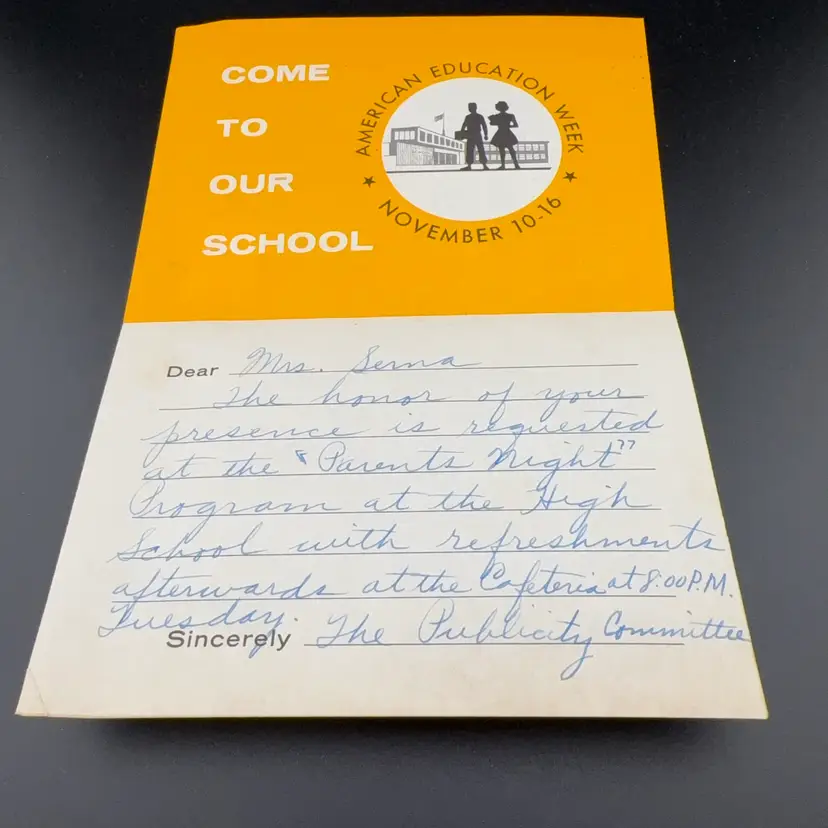 COME
TO
OUR
SCHOOL
AMERICAN EDUCATION WEEK
★ NOVEMBER 10-16 ★
Dear Mrs. Serna
The honor of your
presence is requested
at the "Parents Night"
Program at the High
School with refreshments
afterwards at the Cafeteria at 8:00 P.M.
Tuesday.
Sincerely The Publicity Committee